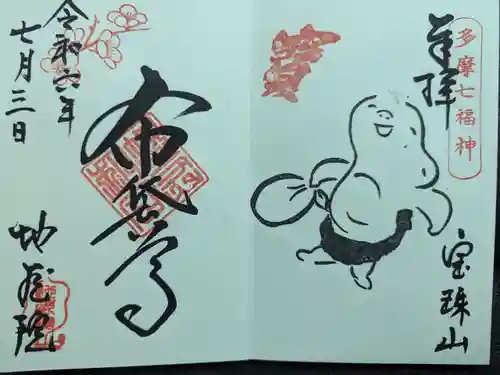 奉拝
多摩七福神
宝珠山
令和六年
七月三日
布袋尊
地蔵院